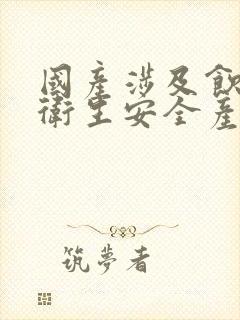 國產涉及飲
衛生安全產
筑夢者